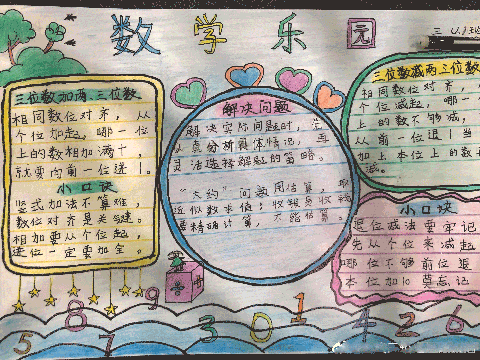 数学乐园
三位数加两三位数
相同数位对齐，从
个位加起，哪一位
上的数相加满十
就要向前一位进1。
小口诀
竖式加法不算难，
数位对齐是关键。
相加要从个位起，
进位一定要加全。
解决问题
解决实际问题时，先
认真分析具体情况，再
灵活选择解题的策略。
“大约”问题用估算，即
近似数求值；收银员收钱
需精确计算，不能估算。
三位数减两三位数
相同数位对齐，从
个位减起，哪一位
上的数不够减，
从前一位退1当
加上本位上的数再
减。
小口诀
退位减法要牢记
先从个位来减起
哪位不够前位退
本位加10莫忘记
5 7 8 9 3 0 1 4 2 6